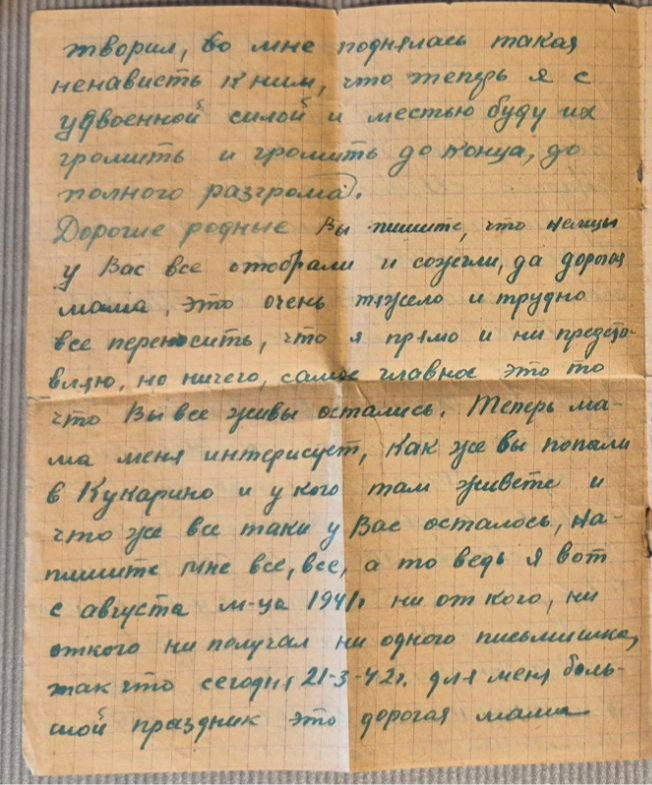 творил, во мне поднялась такая
ненависть к ним, что теперь я с
удвоенной силой и местью буду их
громить и громить до конца, до
полного разгрома.
Дорогие родные Вы пишите, что немцы
у Вас все отобрали и сожгли, да дорогая
мама, это очень тяжело и трудно
все переносить, что я прямо и ни предста-
вляю, но ничего, самое главное это то
что Вы все живы остались. Теперь ма-
ма меня интерисует, как же вы попали
в Кукарино и у кого там живете и
что же все таки у Вас осталось, на-
пишите мне все, все, а то ведь я вот
с августа м-ца 1941г ни от кого, ни
откого ни получал ни одного письмишка,
так что сегодня 21-3-42г. для меня боль-
шой праздник это дорогая мама